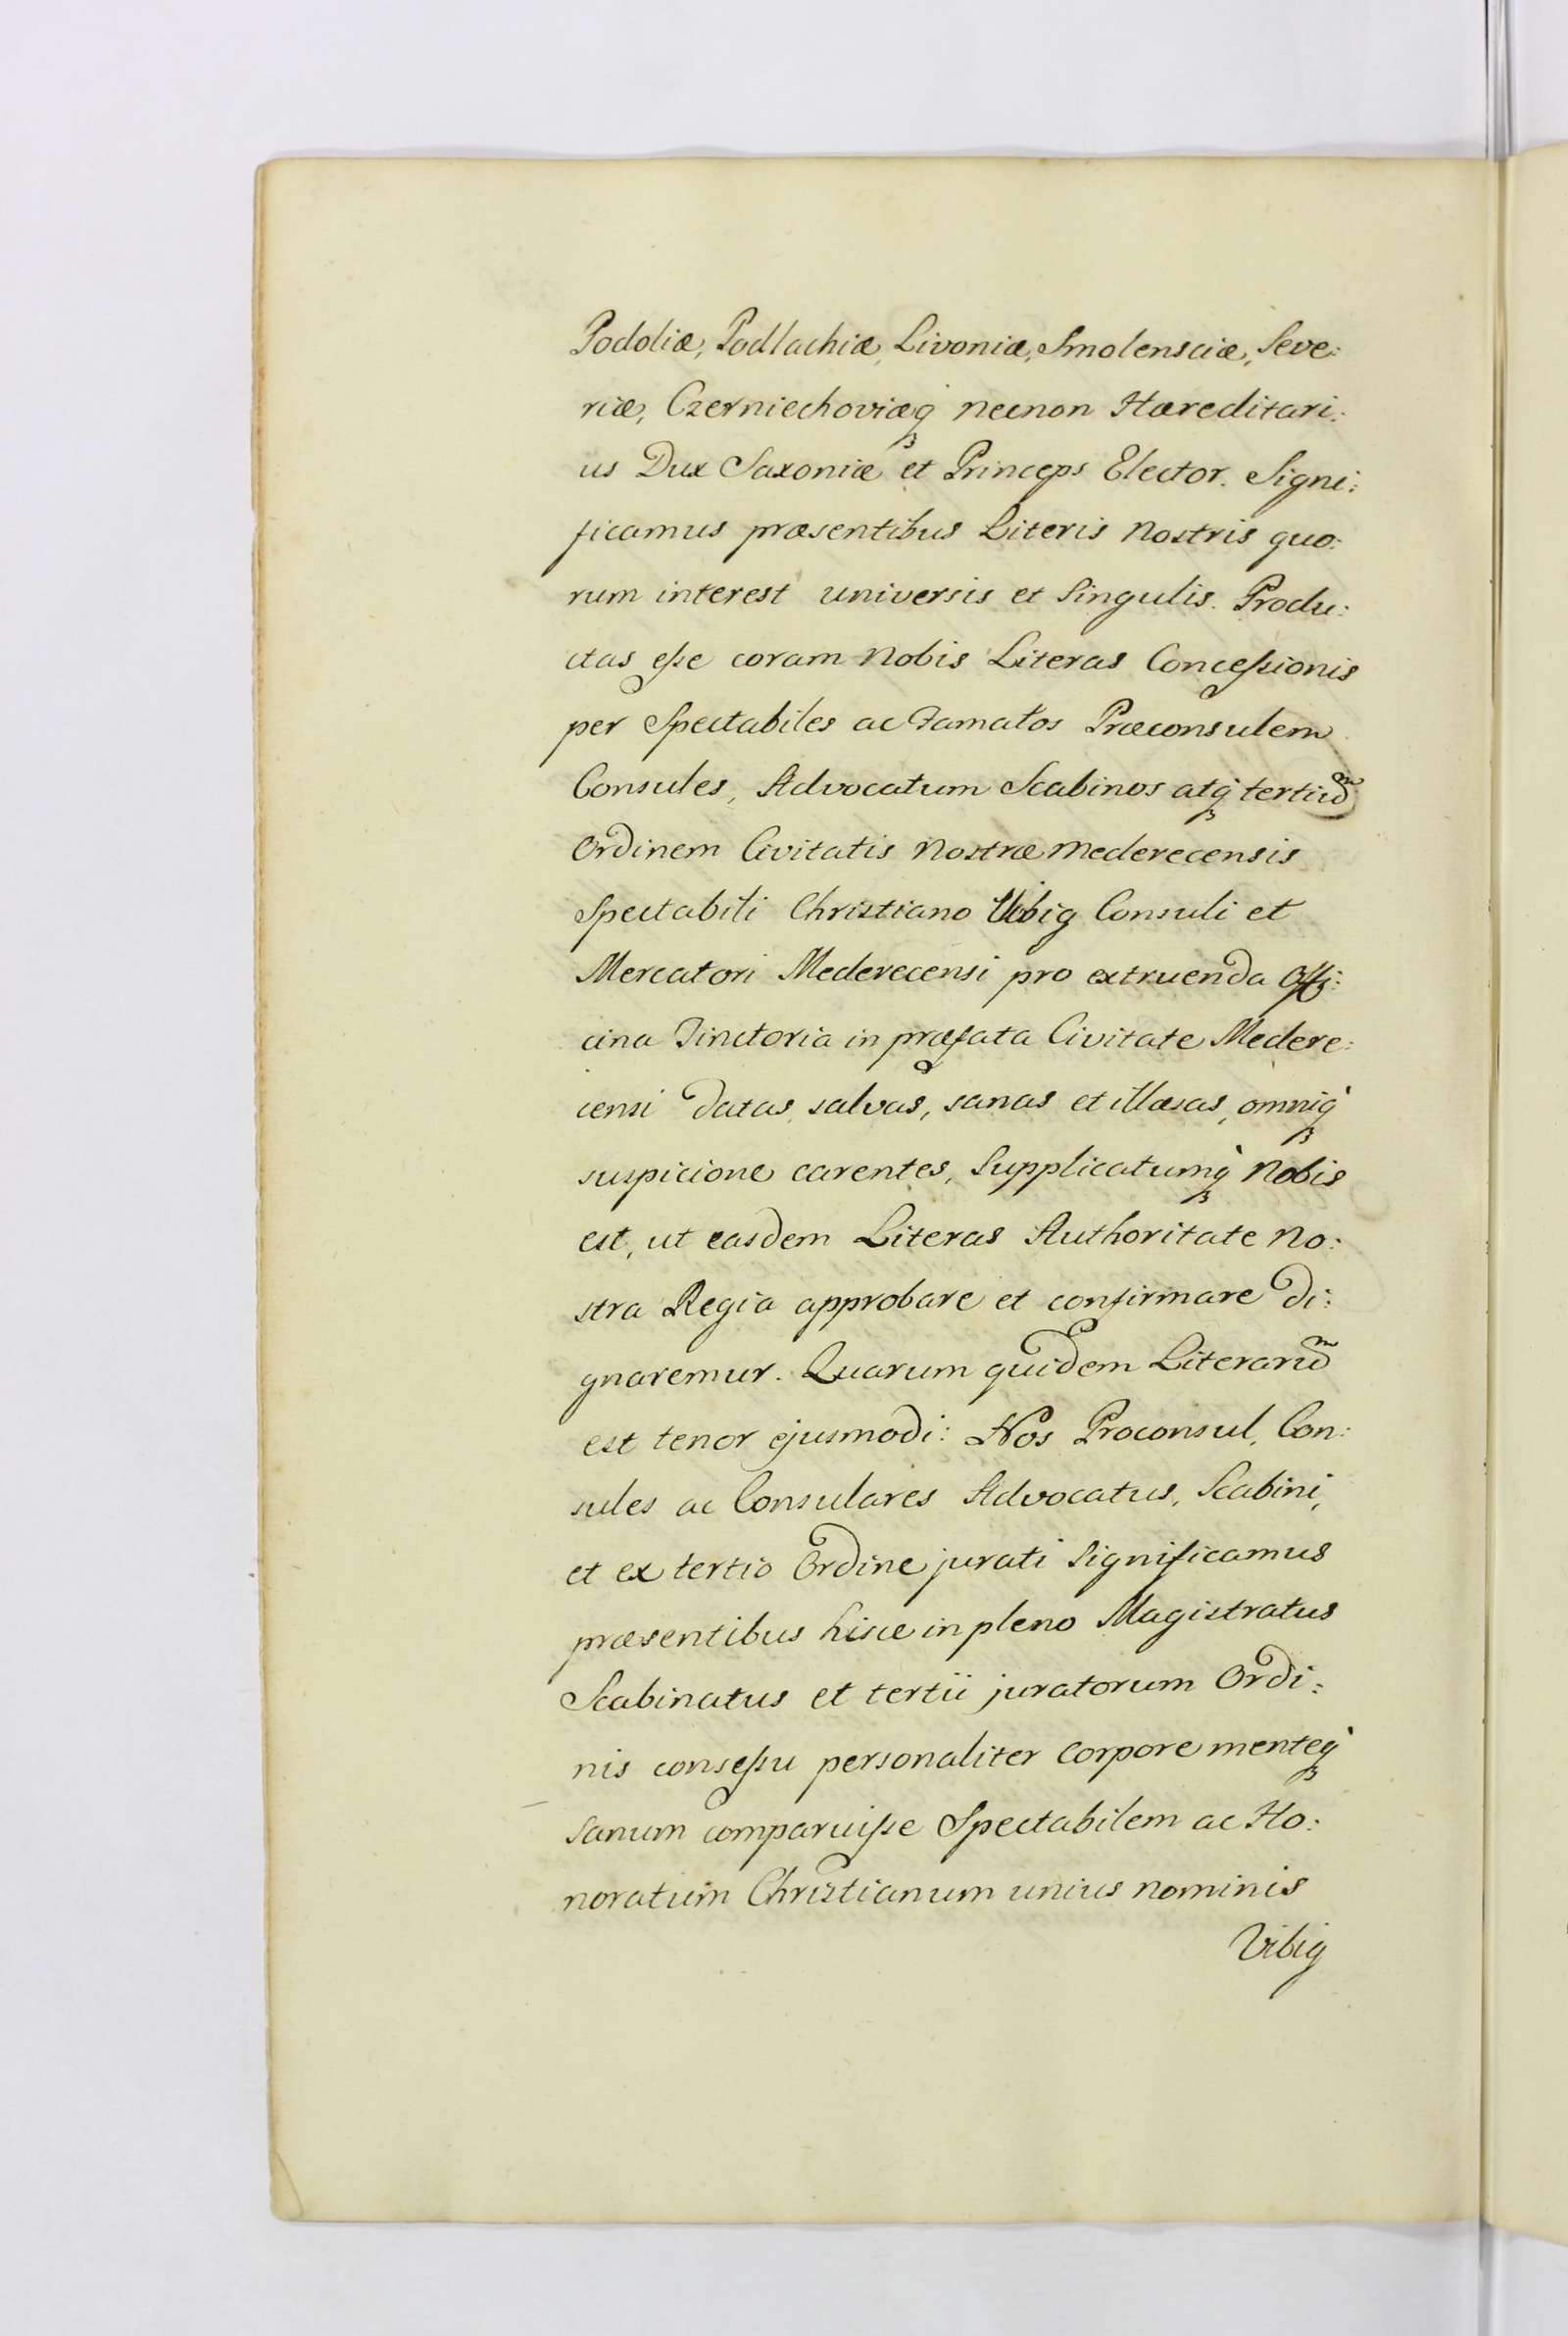 Podoliæ, Podlachiæ, Livoniæ, Smolensciæ, Seve:
riæ, Czerniechoviæq́ꝫ necnon Hæreditari:
us Dux Saxoniæ et Princeps Elector. Signi:
ficamus præsentibus Literis Nostris quo:
rum interest universis et Singulis. Produ:
ctas eſse coram Nobis Literas Conceſsionis
per Spectabiles ac Famatos Præconsulem
Consules, Advocatum Scabinos atq́ꝫ tertiũ
Ordinem Civitatis Nostræ Mederecensis
Spectabili Christiano Vibig Consuli et
Mercatori Mederecensi pro extruenda Offi:
cina Tinctoria in præfata Civitate Medere:
censi datas, salvas, sanas et illæsas, omniq́ꝫ
suspicione carentes, Supplicatumq́ꝫ Nobis
est, ut easdem Literas Authoritate No:
stra Regia approbare et confirmare di:
gnaremur. Quarum quidem Literarũ
est tenor ejusmodi: Nos Proconsul, Con:
sules ac Consulares Advocatus, Scabini,
et ex tertio Ordine jurati Significamus
præsentibus hisce in pleno Magistratus
Scabinatus et tertii juratorum Ordi:
nis conseſsu personaliter Corpore menteq́ꝫ
sanum comparuiſse Spectabilem ac Ho:
noratum Christianum unius nominis
Vibig